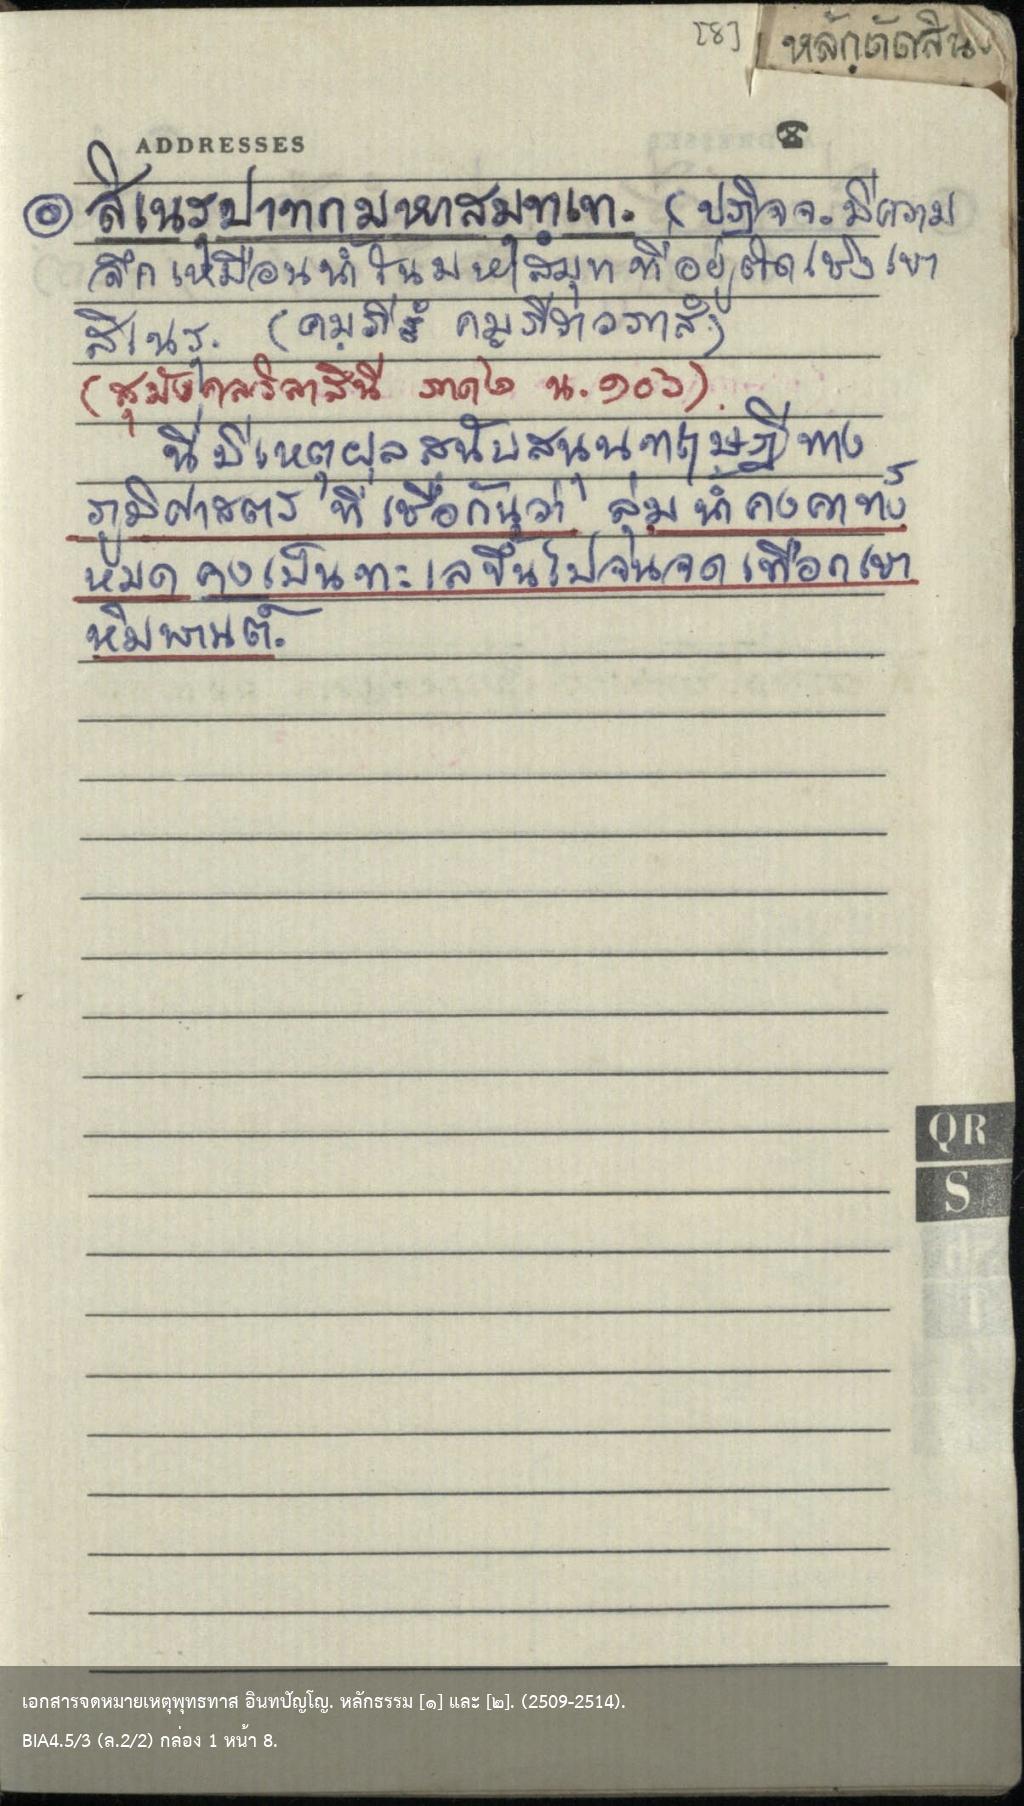 [8]
หลักตัดสิน
ADDRESSES
สิเนรุปาทกมหาสมุทฺเท. (ปฏิจจะ มีความ
ลึกเหมือนน้ำในมหาสมุทที่อยู่ติดเชิงเขา
สิเนรุ. (คมฺภีรํ คมฺภีราวภาสํ)
(สุมังคลวิลาสินี ภาค๒ น.๑๐๖)
นี่มีเหตุผลสนับสนุนทฤษฎีทาง
ภูมิศาสตร์ ที่เชื่อกันว่า ลุ่มน้ำคงคาทั้ง
หมด คงเป็นทะเลขึ้นไปจนจดเทือกเขา
หิมพานต์.
QR
S
เอกสารจดหมายเหตุพุทธทาส อินทปัญโญ. หลักธรรม [๑] และ [๒]. (2509-2514).
BIA4.5/3 (ล.2/2) กล่อง 1 หน้า 8.